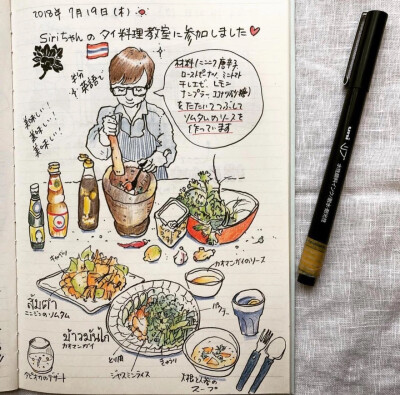 2018年 7月19日(木)
Siriちゃんの タイ料理教室に参加しました
英語で
美味しい!
美味しい!
美味しい!
材料/ニンニク 唐辛子
ローストピーナツ ミニトマト
干しエビ、レモン
ナンプラー ココナツ
をたたいてつぶして
ソムタムのソースを
作っています
キャベツ
カオマンガイのソース
ส้มตำ
ニンジンのソムタム
パクチー
ข้าวมันไก่
カオマンガイ
とり肉
きゅうり
ジャスミンライス
タピオカのデザート
スープ
uni
リア